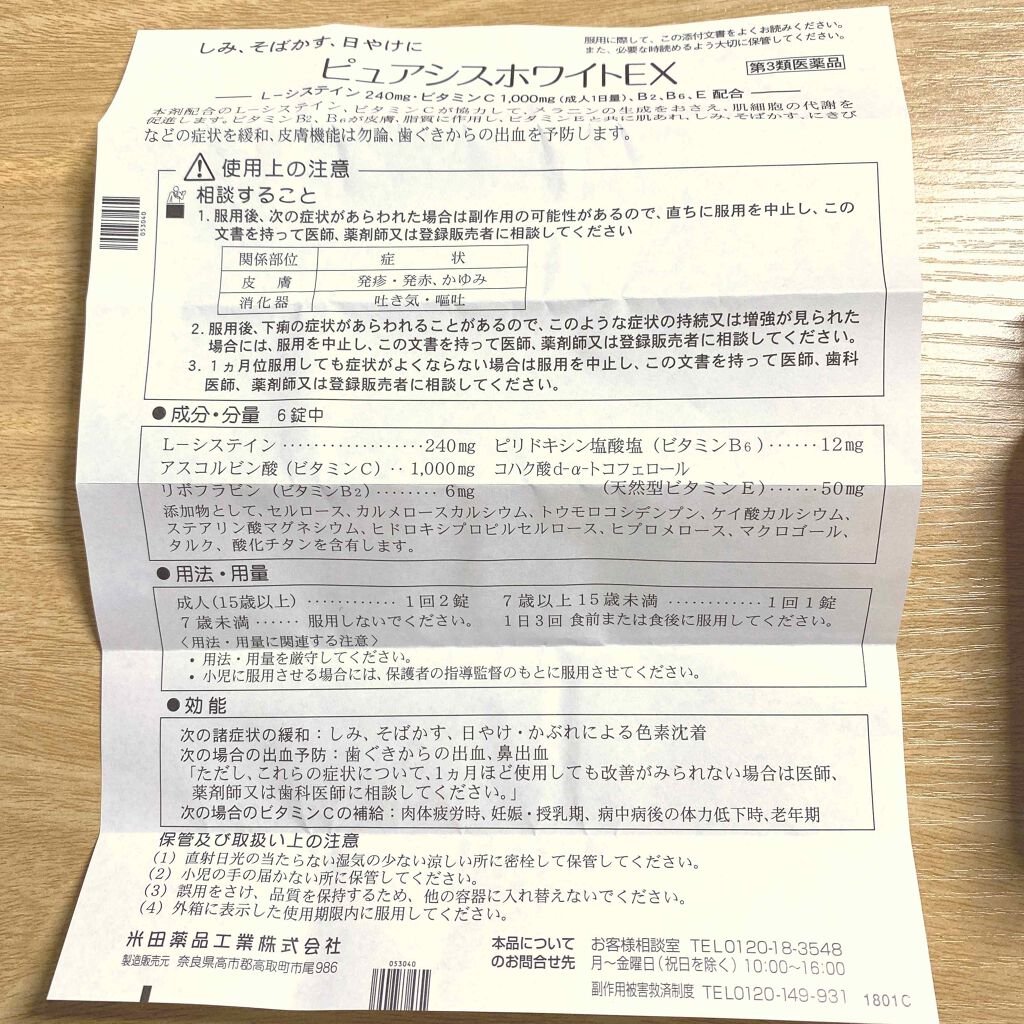 しみ、そばかす、日やけに
服用に際して、この添付文書をよくお読みください。
また、必要な時読めるよう大切に保管してください。
ピュアシスホワイトEX
第3類医薬品
L-システイン 240mg・ビタミンC 1,000mg (成人1日量)、B2、B6、E 配合
本剤配合のL-システイン、ビタミンCが協力して、メラニンの生成をおさえ、肌細胞の代謝を
促進します。ビタミンB2、B6が皮膚、脂質に作用し、ビタミンEと共に肌あれ、しみ、そばかす、にきび
などの症状を緩和、皮膚機能は勿論、歯ぐきからの出血を予防します。
使用上の注意
相談すること
1. 服用後、次の症状があらわれた場合は副作用の可能性があるので、直ちに服用を中止し、この
文書を持って医師、薬剤師又は登録販売者に相談してください
関係部位 症状
皮膚 発疹・発赤、かゆみ
消化器 吐き気・嘔吐
2. 服用後、下痢の症状があらわれることがあるので、このような症状の持続又は増強が見られた
場合には、服用を中止し、この文書を持って医師、薬剤師又は登録販売者に相談してください。
3. 1ヵ月位服用しても症状がよくならない場合は服用を中止し、この文書を持って医師、歯科
医師、薬剤師又は登録販売者に相談してください。
053040
●成分・分量 6錠中
L-システイン ・・・・・・・・・・・・・・・・・・ 240mg ピリドキシン塩酸塩 (ビタミンB6) ・・・・・・ 12mg
アスコルビン酸 (ビタミンC) ・・ 1,000mg コハク酸d-α-トコフェロール
リボフラビン (ビタミンB2) ・・・・・・・・ 6mg (天然型ビタミンE) ・・・・・・ 50mg
添加物として、セルロース、カルメロースカルシウム、トウモロコシデンプン、ケイ酸カルシウム、
ステアリン酸マグネシウム、ヒドロキシプロピルセルロース、ヒプロメロース、マクロゴール、
タルク、酸化チタンを含有します。
●用法・用量
成人(15歳以上) ・・・・・・・・・・・・ 1回2錠 7歳以上15歳未満 ・・・・・・・・・・・・ 1回1錠
7歳未満 ・・・・・・ 服用しないでください。 1日3回 食前または食後に服用してください。
〈用法・用量に関連する注意〉
・用法・用量を厳守してください。
・小児に服用させる場合には、保護者の指導監督のもとに服用させてください。
●効能
次の諸症状の緩和:しみ、そばかす、日やけ・かぶれによる色素沈着
次の場合の出血予防:歯ぐきからの出血、鼻出血
「ただし、これらの症状について、1ヵ月ほど使用しても改善がみられない場合は医師、
薬剤師又は歯科医師に相談してください。」
次の場合のビタミンCの補給:肉体疲労時、妊娠・授乳期、病中病後の体力低下時、老年期
保管及び取扱い上の注意
(1) 直射日光の当たらない湿気の少ない涼しい所に密栓して保管してください。
(2) 小児の手の届かない所に保管してください。
(3) 誤用をさけ、品質を保持するため、他の容器に入れ替えないでください。
(4) 外箱に表示した使用期限内に服用してください。
米田薬品工業株式会社
製造販売元 奈良県高市郡高取町市尾986
053040
本品について
のお問合せ先
お客様相談室 TEL0120-18-3548
月~金曜日(祝日を除く) 10:00~16:00
副作用被害救済制度 TEL0120-149-931
1801C